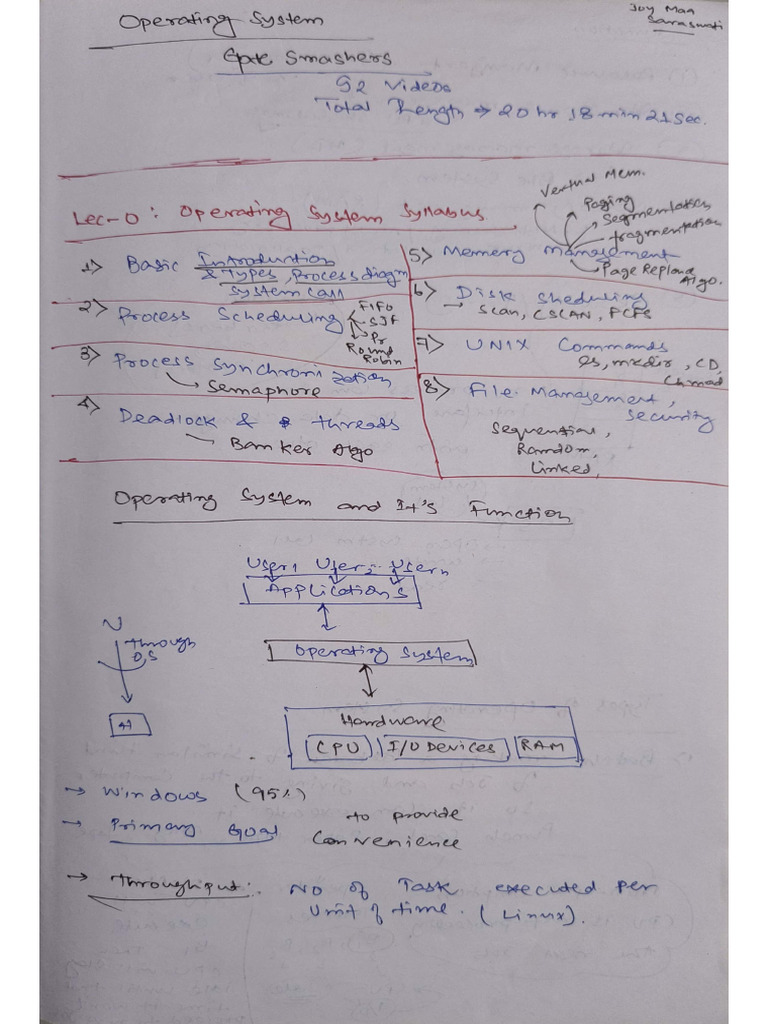 Operating System
Joy Maa
Saraswati
Gate Smashers
92 Videos
Total Length → 20 hr 18 min 21 Sec.
Lec-0: Operating System Syllabus
1) Basic Introduction
& Types, Process diagm
System Call
2) Process Scheduling
FIFO
SJF
Pr
Round
Robin
3) Process Synchronization
Semaphore
4) Deadlock & threads
Banker Algo
5) Memory Management
Vertual Mem.
Paging
Segmentation
fragmentation
Page Replace
Algo.
6) Disk Sheduling
Scan, CSCAN, FCFS
7) UNIX Commands
ls, mkdir, CD,
Chmod
8) File Management,
Security
Sequential,
Random,
Linked,
Operating System and It's Function
User1 User2 .. Usern
Applications
Operating System
Hardware
CPU I/O Devices RAM
U
Through
O.S
H
→ Windows (95%)
→ Primary Goal to provide
Convenience
→ Throughput: No of Task executed per
Unit of time. (Linux).